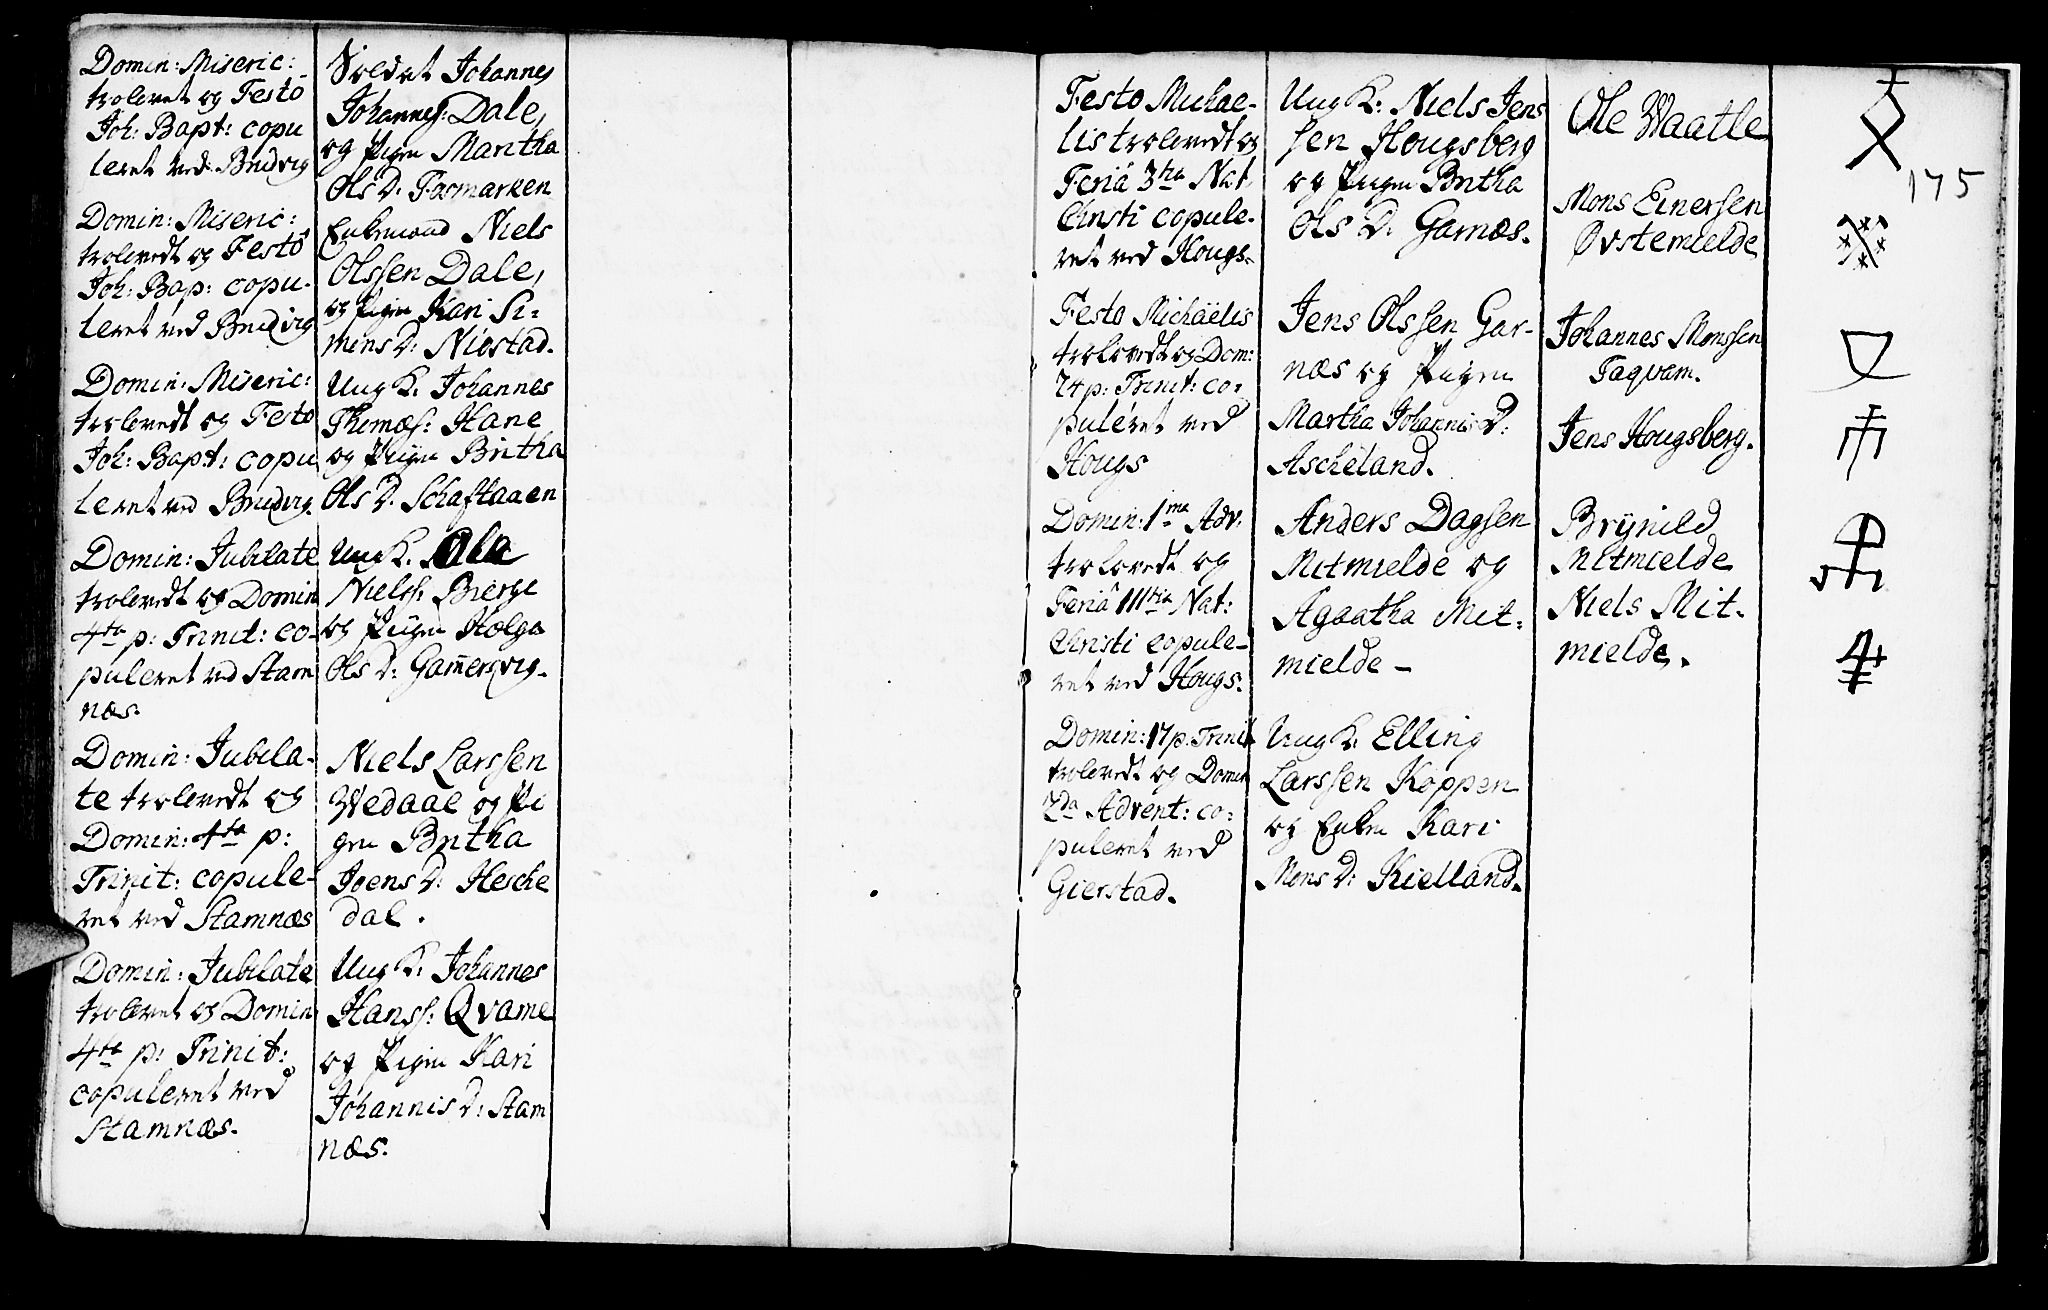 Domin: Miseric:
trolovet og Festo
Joh: Bapt: copu
leret ved Brudvig
Domin: Miseric:
trolovedt og Festo
Joh: Bap: copu-
leret ved Brudvig
Domin: Miseric:
trolovedt og Festo
Joh: Bapt: copu
leret ved Brudvig.
Domin: Jubilate
trolovedt og Domin
4ta p: Trinit: co-
puleret ved Stam
næs.
Domin: Jubila-
te trolovedt og
Domin: 4ta p:
Trinit: copule-
ret ved Stamnæs
Domin: Jubilate
trolovet og Domin
4ta p: Trinit:
copuleret ved
Stamnæs.
Soldat Johannes
Johannes: Dale,
og Pigen Maritha
Ols D: Fosmarken
Enkemand Niels
Olssen Dale,
og Pigen Kari Si-
mens D: Niostad.
Ung K: Johannes
Thomæs: Hane
og Pigen Britha
Ols D: Schaftaaen
Ung K. Ola
Nielss: Bierge
og Pigen Holga
Ols D: Gamersvig.
Niels Larssen
Wedaae og Pi
gen Britha
Joens D: Hesche
dal.
Ung K: Johannes
Hanss: Qvame
og Pigen Kari
Johannis D: Stam
næs.
Festo Michae-
lis trolovedt og
Feriâ 3tia Nat.
Christi copule-
ret ved Hougs.
Festo Michaëlis
trolovedt og Dom:
24 p: Trinit: co-
puleret ved
Hougs
Domin: 1ma Adv:
trolovedt og
Feriâ IIItia Nat:
Christi copule-
ret ved Hougs.
Domin: 17 p: Trinit
trolovedt og Domin
2da Advent: co-
puleret ved
Gierstad.
Ung K: Niels Jens
sen Hougsberg
og Pigen Britha
Ols D: Garnæs.
Jens Olssen Gar-
næs og Pigen
Martha Johannis D:
Ascheland.
Anders Dagssen
Mitmielde og
Agaatha Mit-
mielde -
Ung K: Elling
Larssen Koppen
og Enken Kari
Mons D: Kielland.
Ole Waatle
Mons Einerssen
Øvstemielde
Johannes Monssen
Tagvam.
Jens Hougsberg.
Brynild
Mitmielde
Niels Mit-
mielde.
175